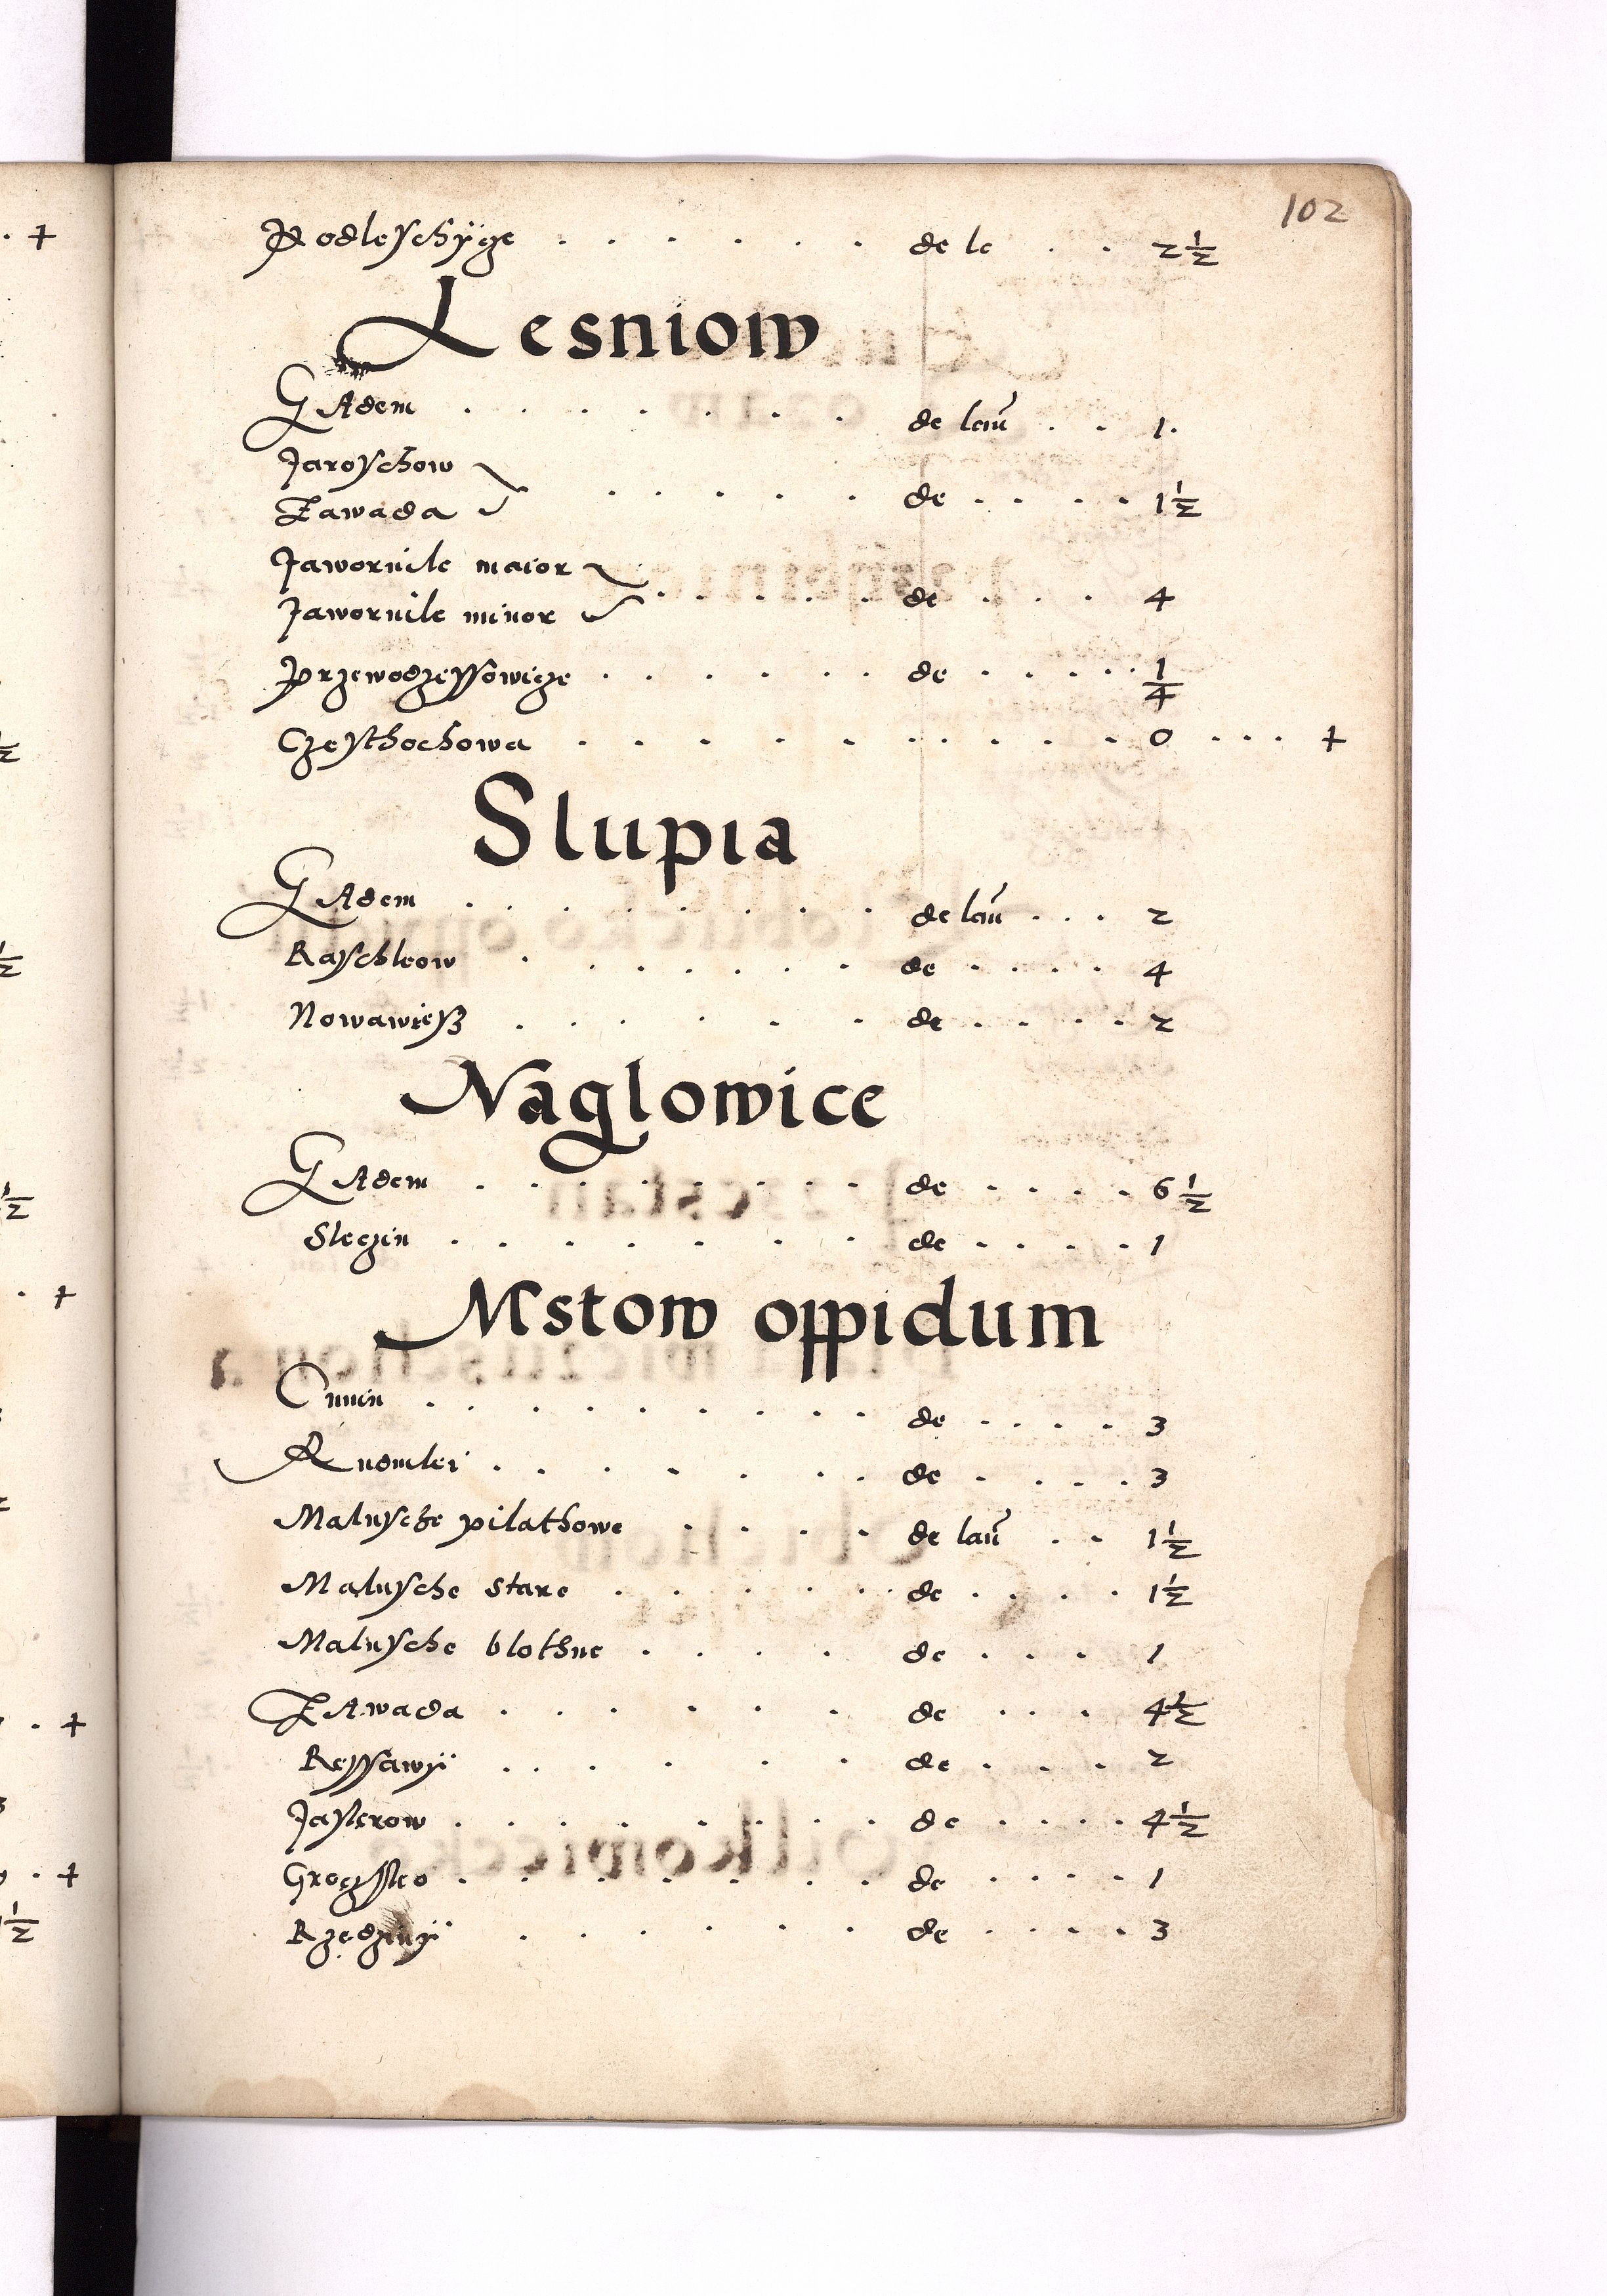 102
Podleschÿcze . . . . . . de la . . 2 1/2
Lesniow
EAdem . . . . . . . de laū . . 1.
Jaroschow
Zawada . . . . . de . . . . 1 1/2
Jawornik maior
Jawornik minor . . . . . de . . . 4
Przewodzessowicze . . . . . . de . . . . . 1/4
Czesthochowa . . . . . . . . . . . 0 . . . +
Slupia
EAdem . . . . . . . . de laū . . . 2
Raschkow . . . . . . . de . . . . 4
Nowawiesz . . . . . . de . . . . 2
Naglowice
EAdem . . . . . . . . de . . . . 6 1/2
Sleczin . . . . . . . de . . . . 1
Mstow oppidum
Cunin . . . . . . . . . de . . . . 3
Kudmki . . . . . . . de . . . . 3
Malusche pilathowe . . . . de laū . . 1 1/2
Malusche stare . . . . . . de . . . . 1 1/2
Malusche blothne . . . . de . . . 1
ZAwada . . . . . . de . . . 4 1/2
Ressawÿ . . . . . . de . . . . 2
Jaskrow . . . . . . . . de . . . . 4 1/2
Groczsko . . . . . . . . de . . . . 1
Rzedzinÿ . . . . . . de . . . . 3